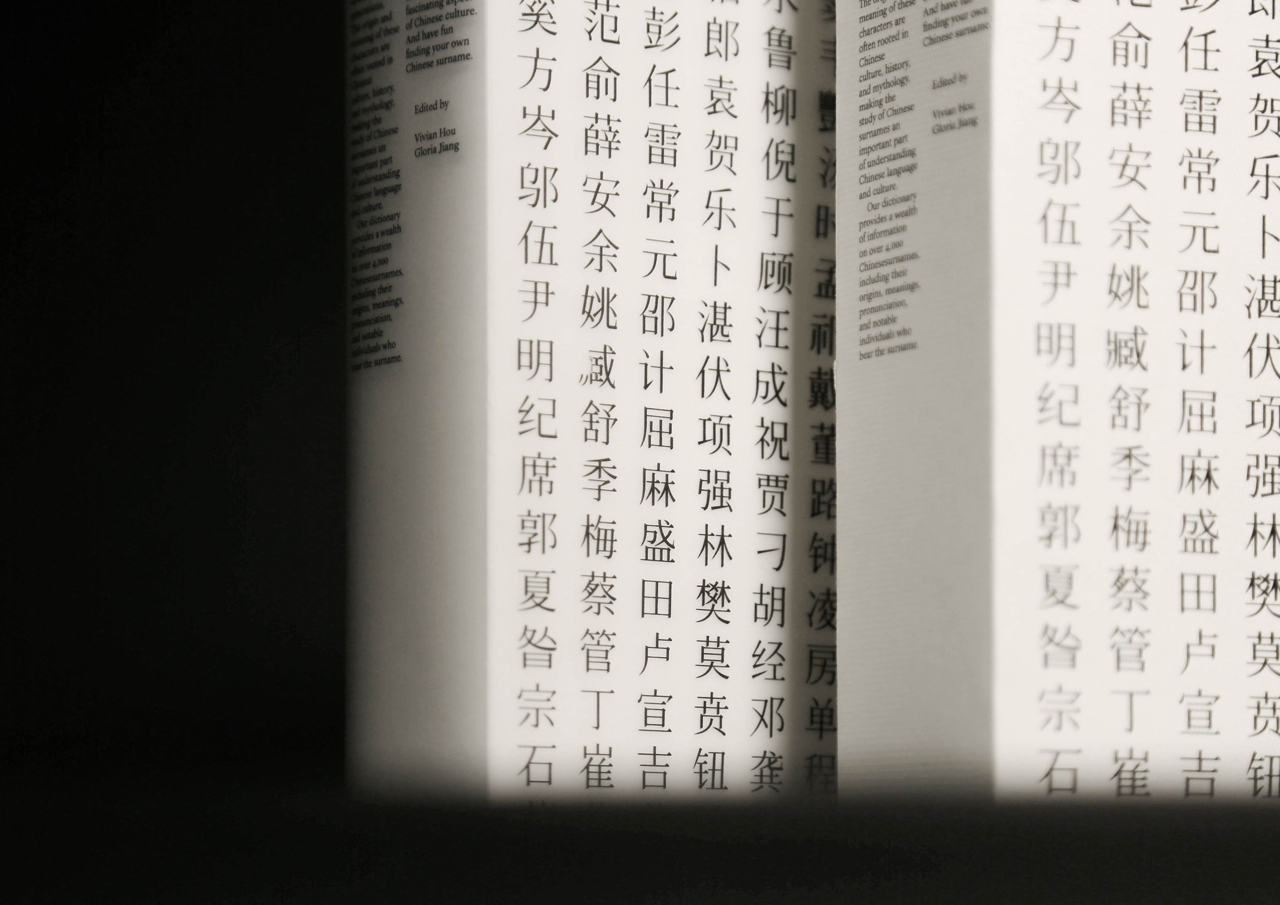 origin and
meaning of these
characters are
often rooted in
culture, history,
and mythology,
making the
study of Chinese
surnames an
important part
of understanding
Chinese language
and culture.
Our dictionary
provides a wealth
of information
on over 4,000
Chinesesurnames,
including their
origins, meanings,
pronunciation,
and notable
individuals who
bear the surname.
fascinating aspects
of Chinese culture.
And have fun
finding your own
Chinese surname.
Edited by
Vivian Hou
Gloria Jiang
奚方岑邬伍尹明纪席郭夏昝宗石
范俞薛安余姚臧舒季梅蔡管丁崔
彭任雷常元邵计屈麻盛田卢宣吉
郎袁贺乐卜湛伏项强林樊莫贲钮
鲁柳倪于顾汪成祝贾刁胡经邓龚
时孟祁戴董路钟凌房单程
meaning of these
characters are
often rooted in
Chinese
culture, history,
and mythology,
making the
study of Chinese
surnames an
important part
of understanding
Chinese language
and culture.
Our dictionary
provides a wealth
of information
on over 4,000
Chinesesurnames,
including their
origins, meanings,
pronunciation,
and notable
individuals who
bear the surname.
And have fun
finding your own
Chinese surname.
Edited by
Vivian Hou
Gloria Jiang
方岑邬伍尹明纪席郭夏昝宗石
俞薛安余姚臧舒季梅蔡管丁崔
彭任雷常元邵计屈麻盛田卢宣吉
袁贺乐卜湛伏项强林樊莫贲钮